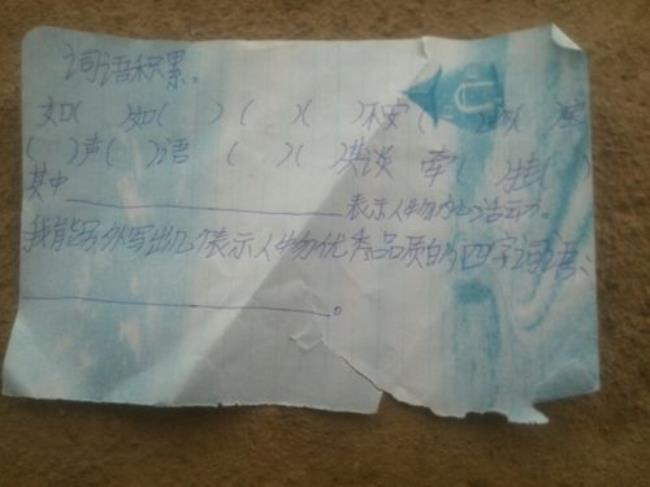 词语积累。
如( )如( ) ( )( )不安 ( )
( )声( )语 ( )( )其谈 牵( )挂( )
其中__________表示人物内心活动。
我能另外写出几个表示人物优秀品质的四字词语:
__________。